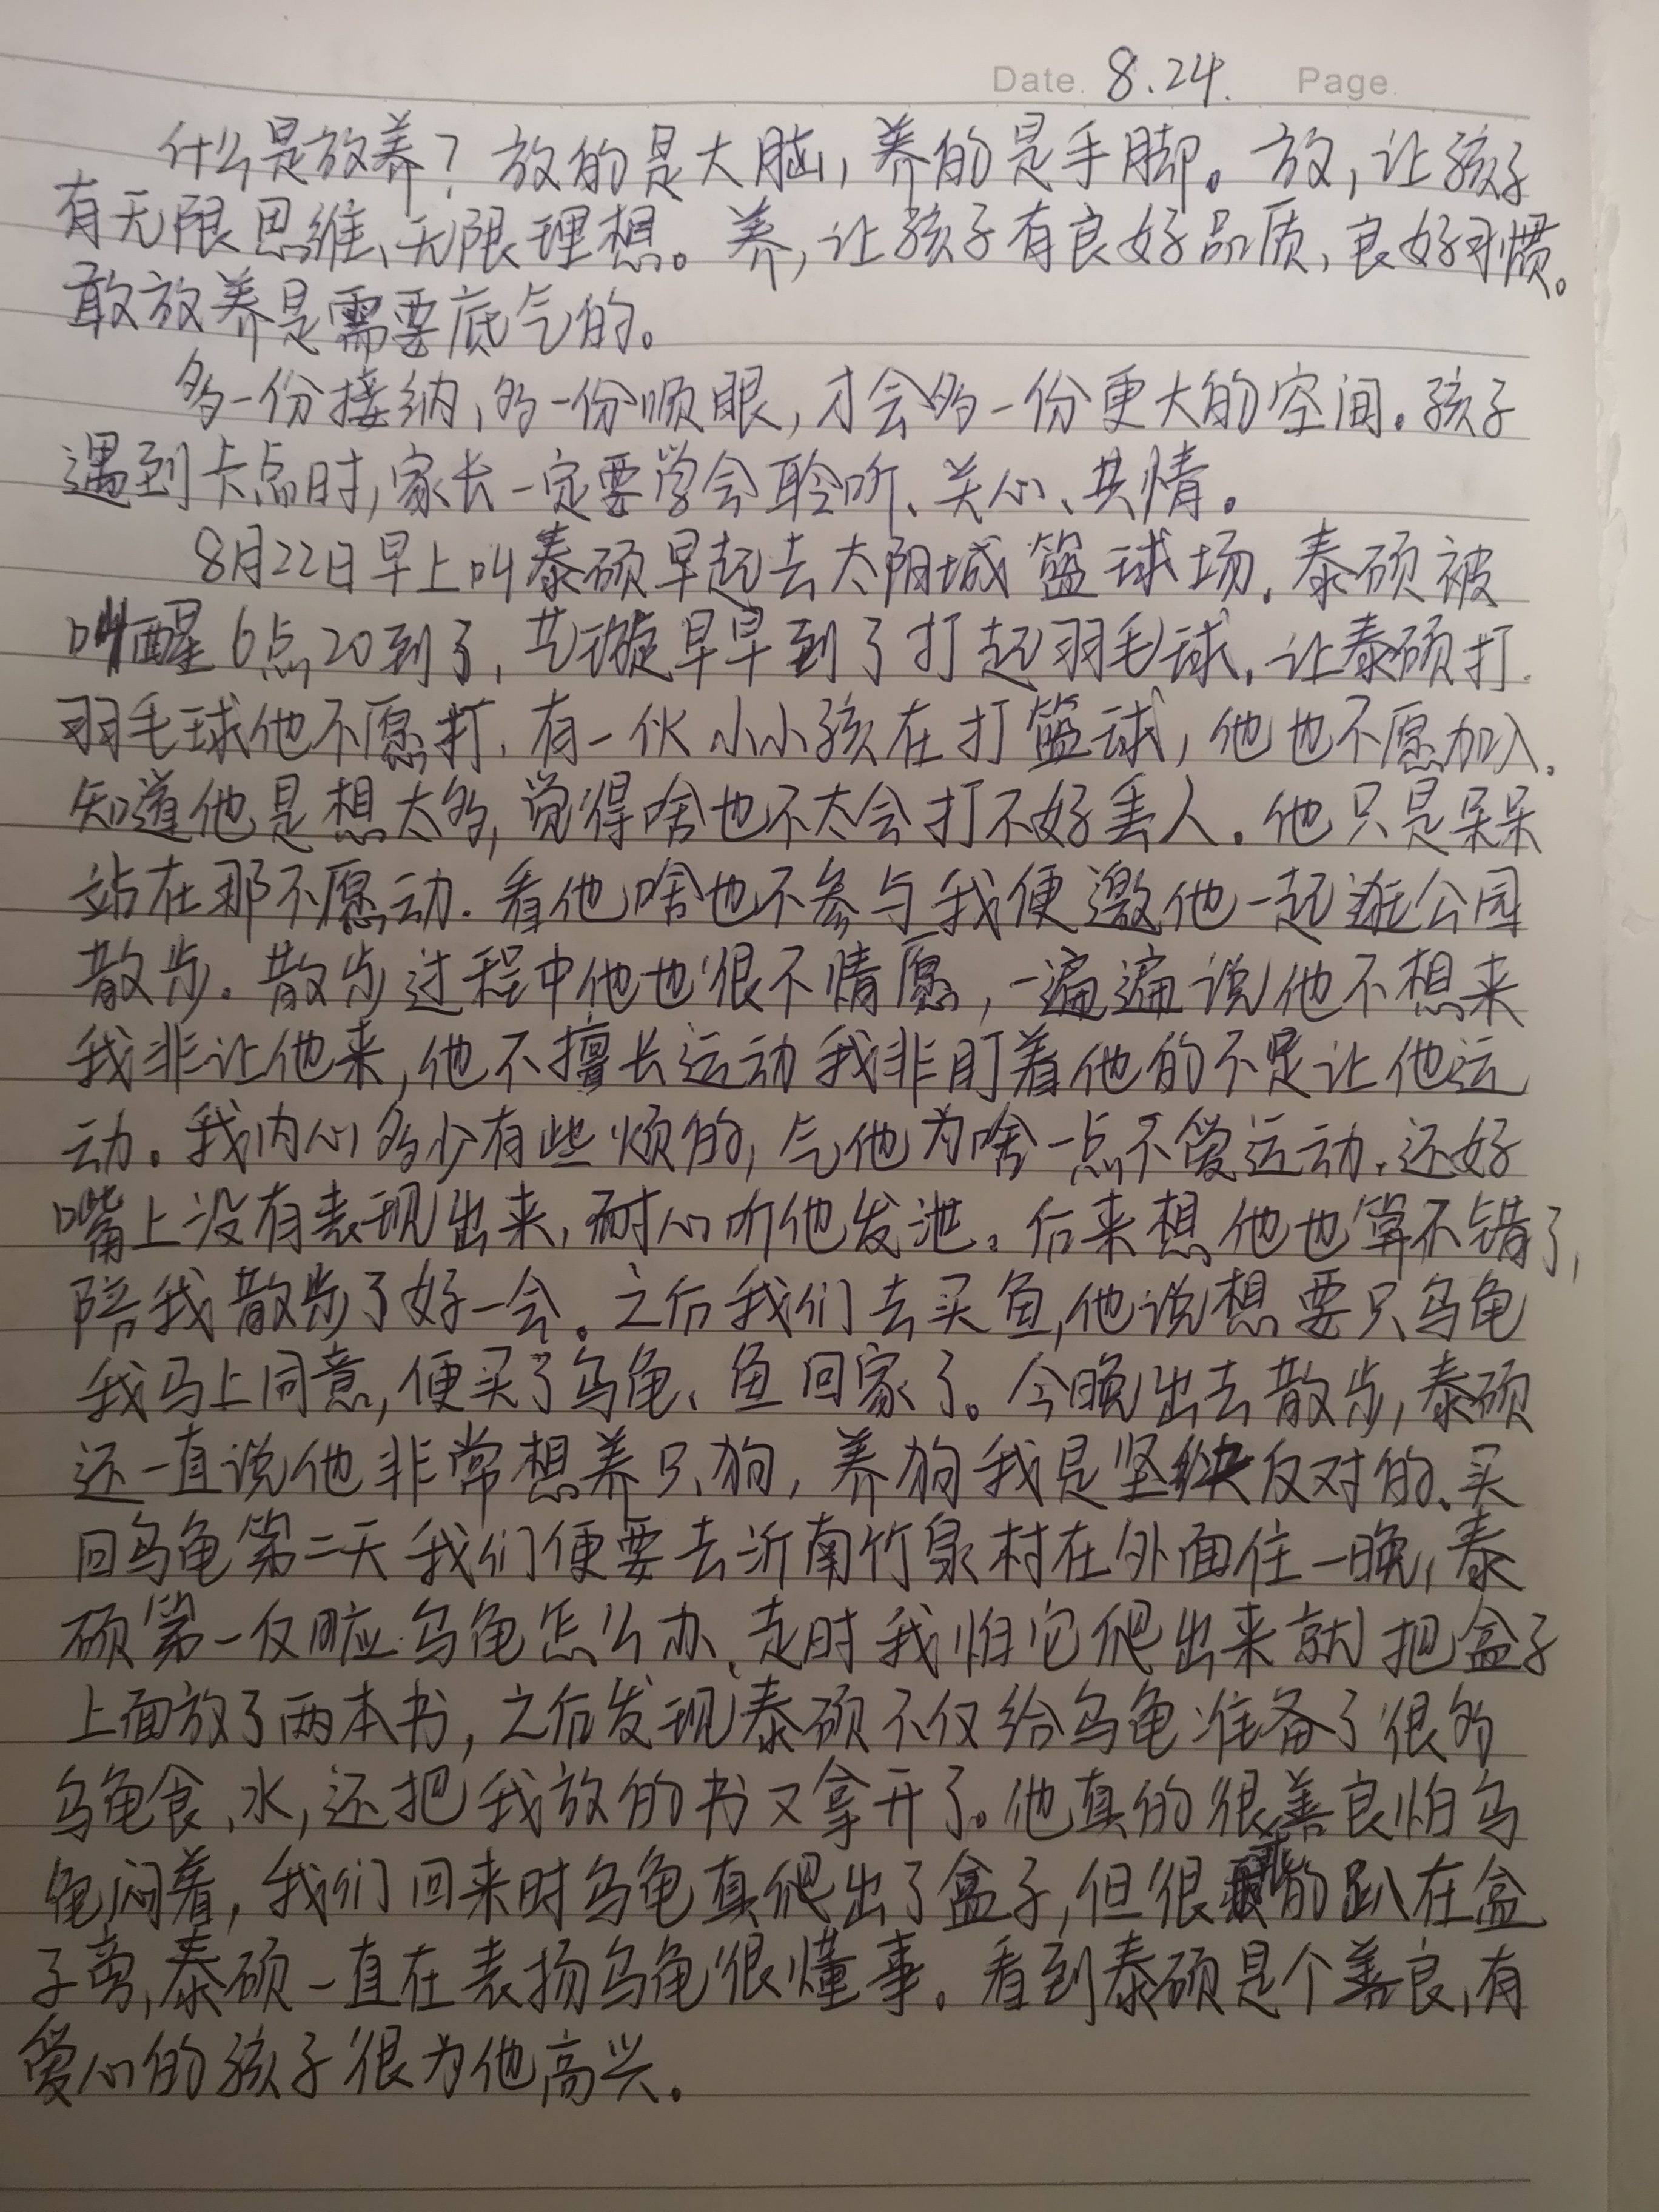 Date. 8.24. Page.
什么是放养？放的是大脑，养的是手脚。放，让孩子
有无限思维、无限理想。养，让孩子有良好品质、良好习惯。
敢放养是需要底气的。
多一份接纳、多一份顺眼，才会多一份更大的空间。孩子
遇到卡点时，家长一定要学会聆听、关心、共情。
8月22日早上叫泰硕早起去太阳城篮球场，泰硕被
叫醒6点20到了，艺璇早早到了打起羽毛球，让泰硕打
羽毛球他不愿打，有一伙小小孩在打篮球，他也不愿加入。
知道他是想太多，觉得啥也不太会打不好丢人。他只是呆呆
站在那不愿动．看他啥也不参与我便邀他一起逛公园
散步。散步过程中他也很不情愿，一遍遍说他不想来
我非让他来，他不擅长运动我非盯着他的不足让他运
动。我内心多少有些烦的，气他为啥一点不爱运动，还好
嘴上没有表现出来，耐心听他发泄。后来想他也算不错了，
陪我散步了好一会。之后我们去买鱼，他说想要只乌龟
我马上同意，便买了乌龟、鱼回家了。今晚出去散步，泰硕
还一直说他非常想养只狗，养狗我是坚决反对的、买
回乌龟第二天我们便要去沂南竹泉村在外面住一晚，泰
硕第一反应乌龟怎么办、走时我怕它爬出来就把盒子
上面放了两本书，之后发现泰硕不仅给乌龟准备了很多
乌龟食、水，还把我放的书又拿开了。他真的很善良怕乌
龟闷着，我们回来时乌龟真爬出了盒子，但很的趴在盒
子旁，泰硕一直在表扬乌龟很懂事。看到泰硕是个善良，有
爱心的孩子很为他高兴。